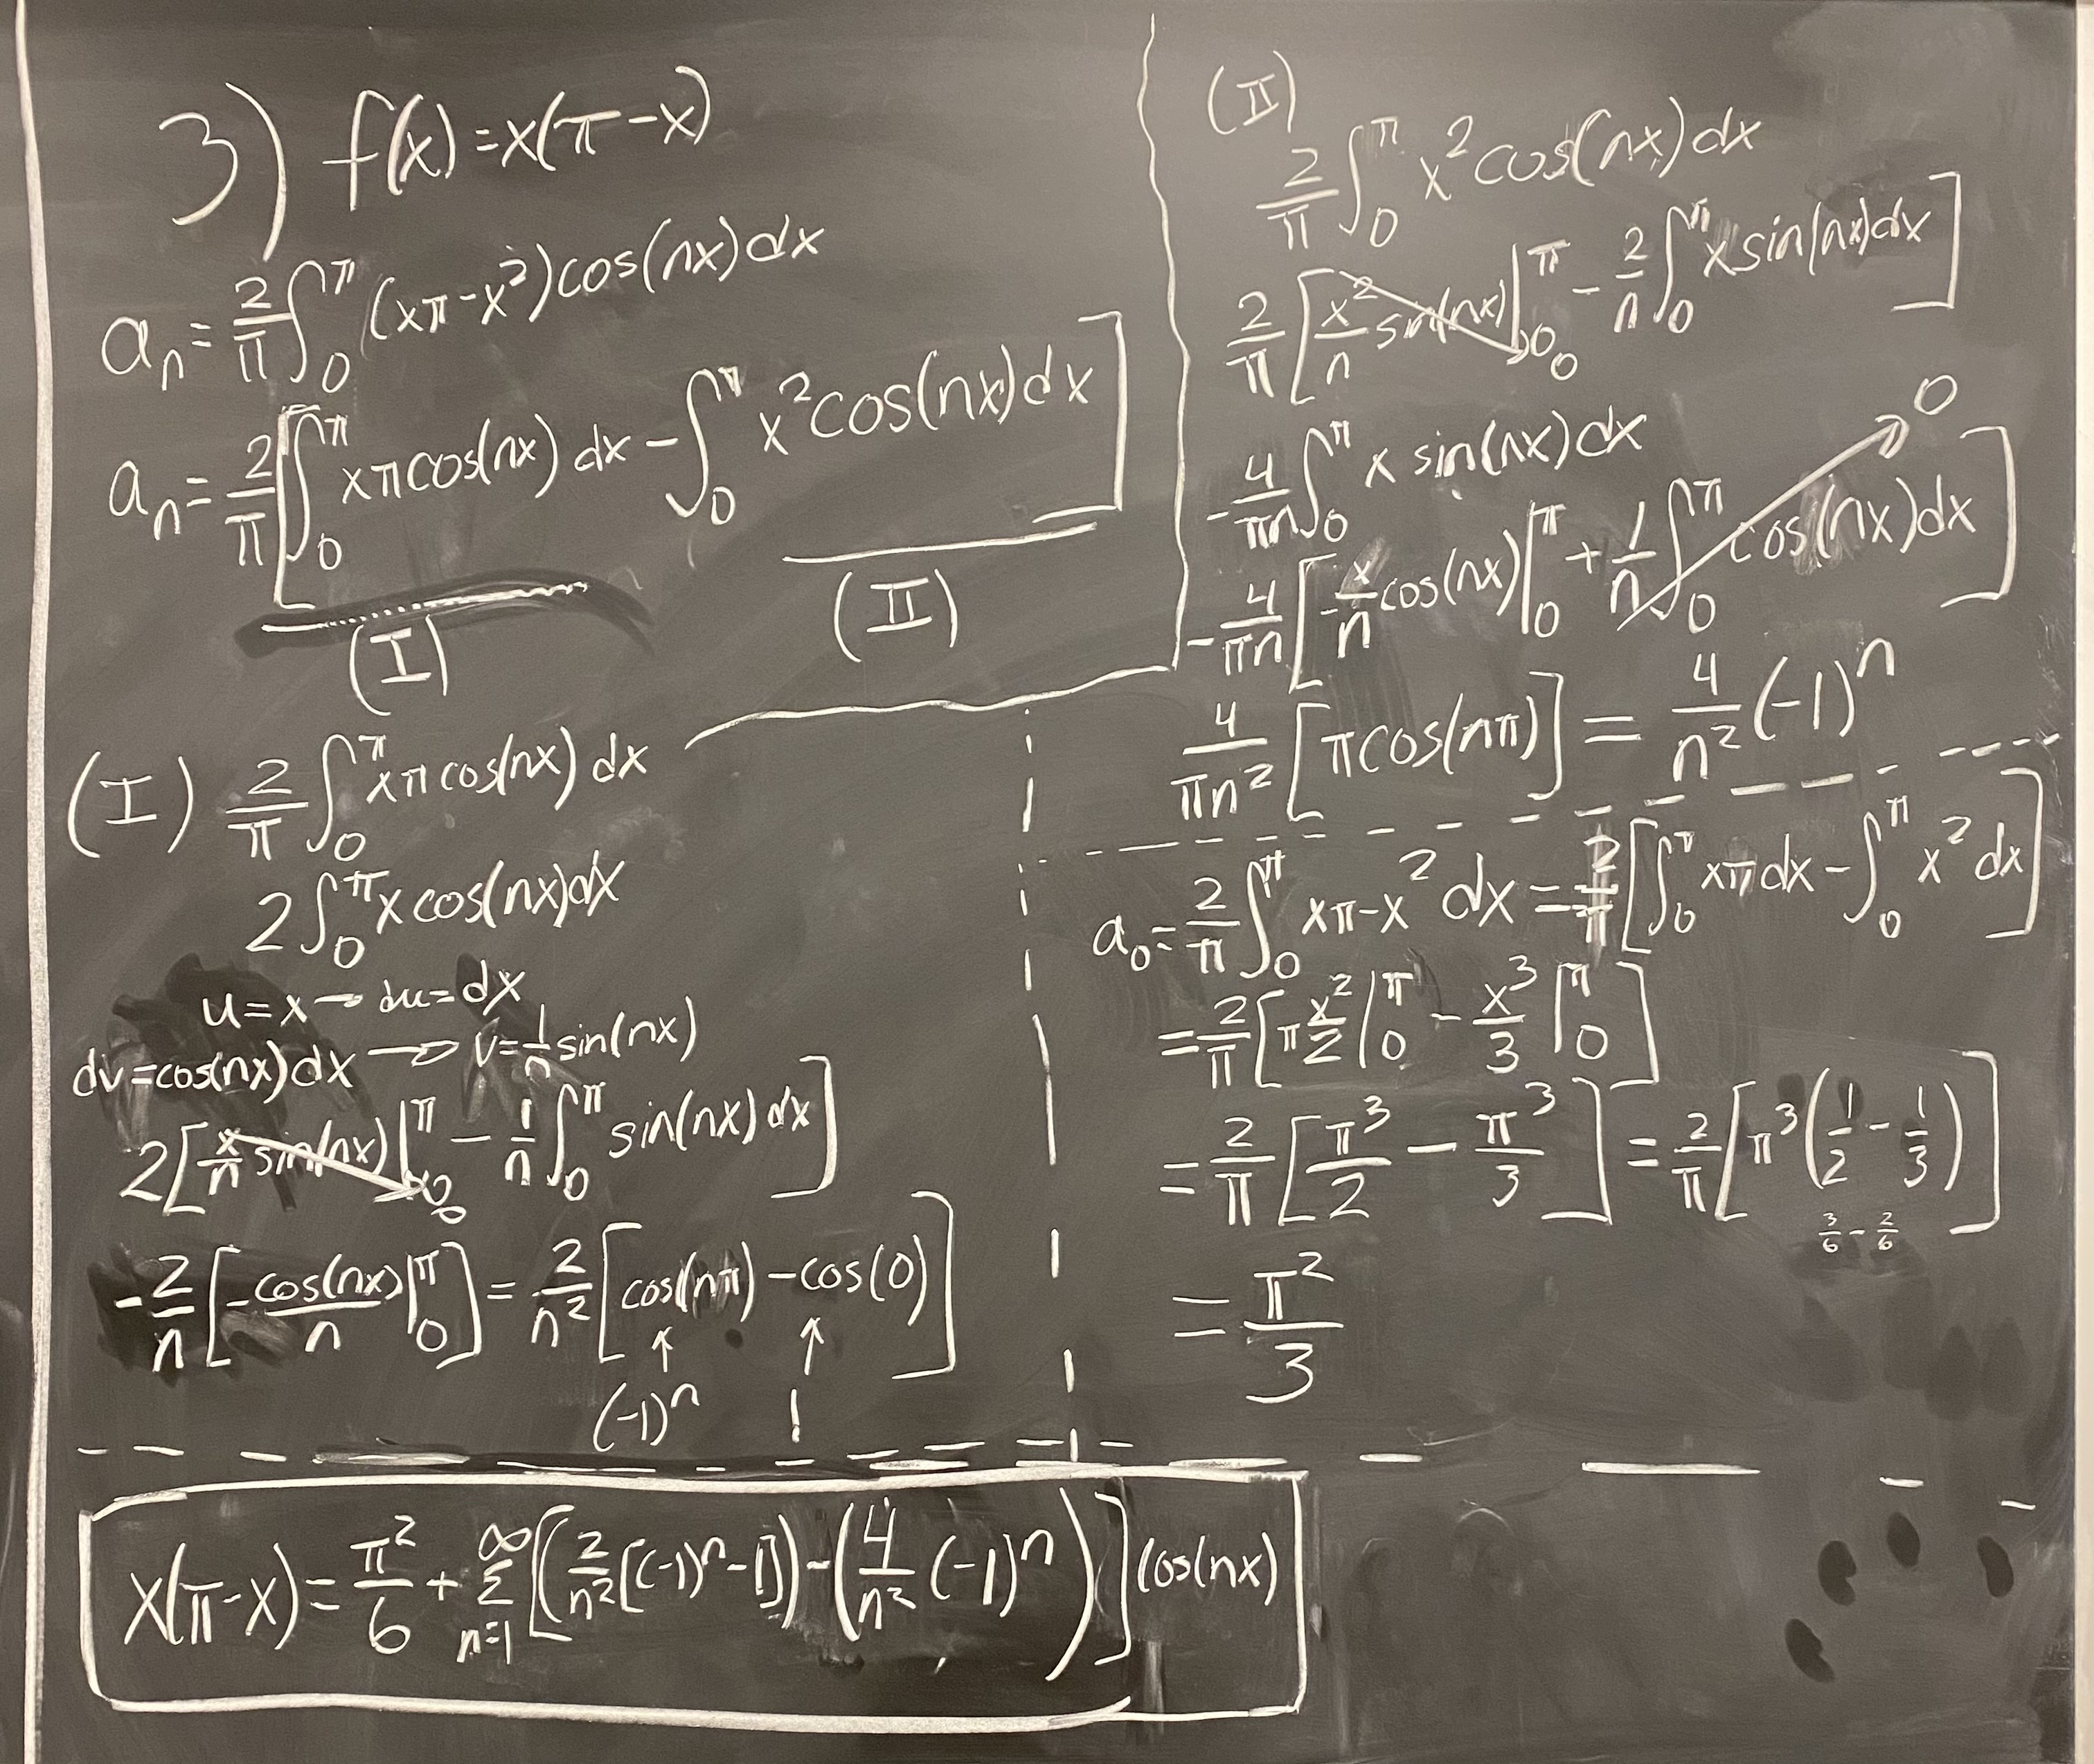 3) f(x)=x(π-x)
aₙ= 2/π ∫₀^π (xπ-x²)cos(nx)dx
aₙ= 2/π [∫₀^π xπcos(nx) dx - ∫₀^π x²cos(nx)dx]
(I) (II)
(I) 2/π ∫₀^π xπcos(nx) dx
2∫₀^π xcos(nx)dx
u=x → du=dx
dv=cos(nx)dx → v=1/n sin(nx)
2[x/n sin(nx)|₀^π → 0 - 1/n ∫₀^π sin(nx)dx]
-2/n [-cos(nx)/n |₀^π] = 2/n² [cos(nπ) -cos(0)]
↑ ↑
(-1)ⁿ 1
(II)
2/π ∫₀^π x²cos(nx)dx
2/π [x²/n sin(nx)|₀^π → 0 - 2/n ∫₀^π xsin(nx)dx]
-4/πn ∫₀^π x sin(nx)dx
-4/πn [-x/n cos(nx)|₀^π + 1/n ∫₀^π cos(nx)dx → 0]
4/πn² [πcos(nπ)] = 4/n² (-1)ⁿ
a₀= 2/π ∫₀^π xπ-x² dx = 2/π [∫₀^π xπdx - ∫₀^π x²dx]
= 2/π [π x²/2 |₀^π - x³/3 |₀^π]
= 2/π [π³/2 - π³/3] = 2/π [π³(1/2 - 1/3)]
3/6 - 2/6
= π²/3
x(π-x) = π²/6 + Σ_{n=1}^∞ [(2/n² [(-1)ⁿ-1]) - (4/n² (-1)ⁿ)] cos(nx)